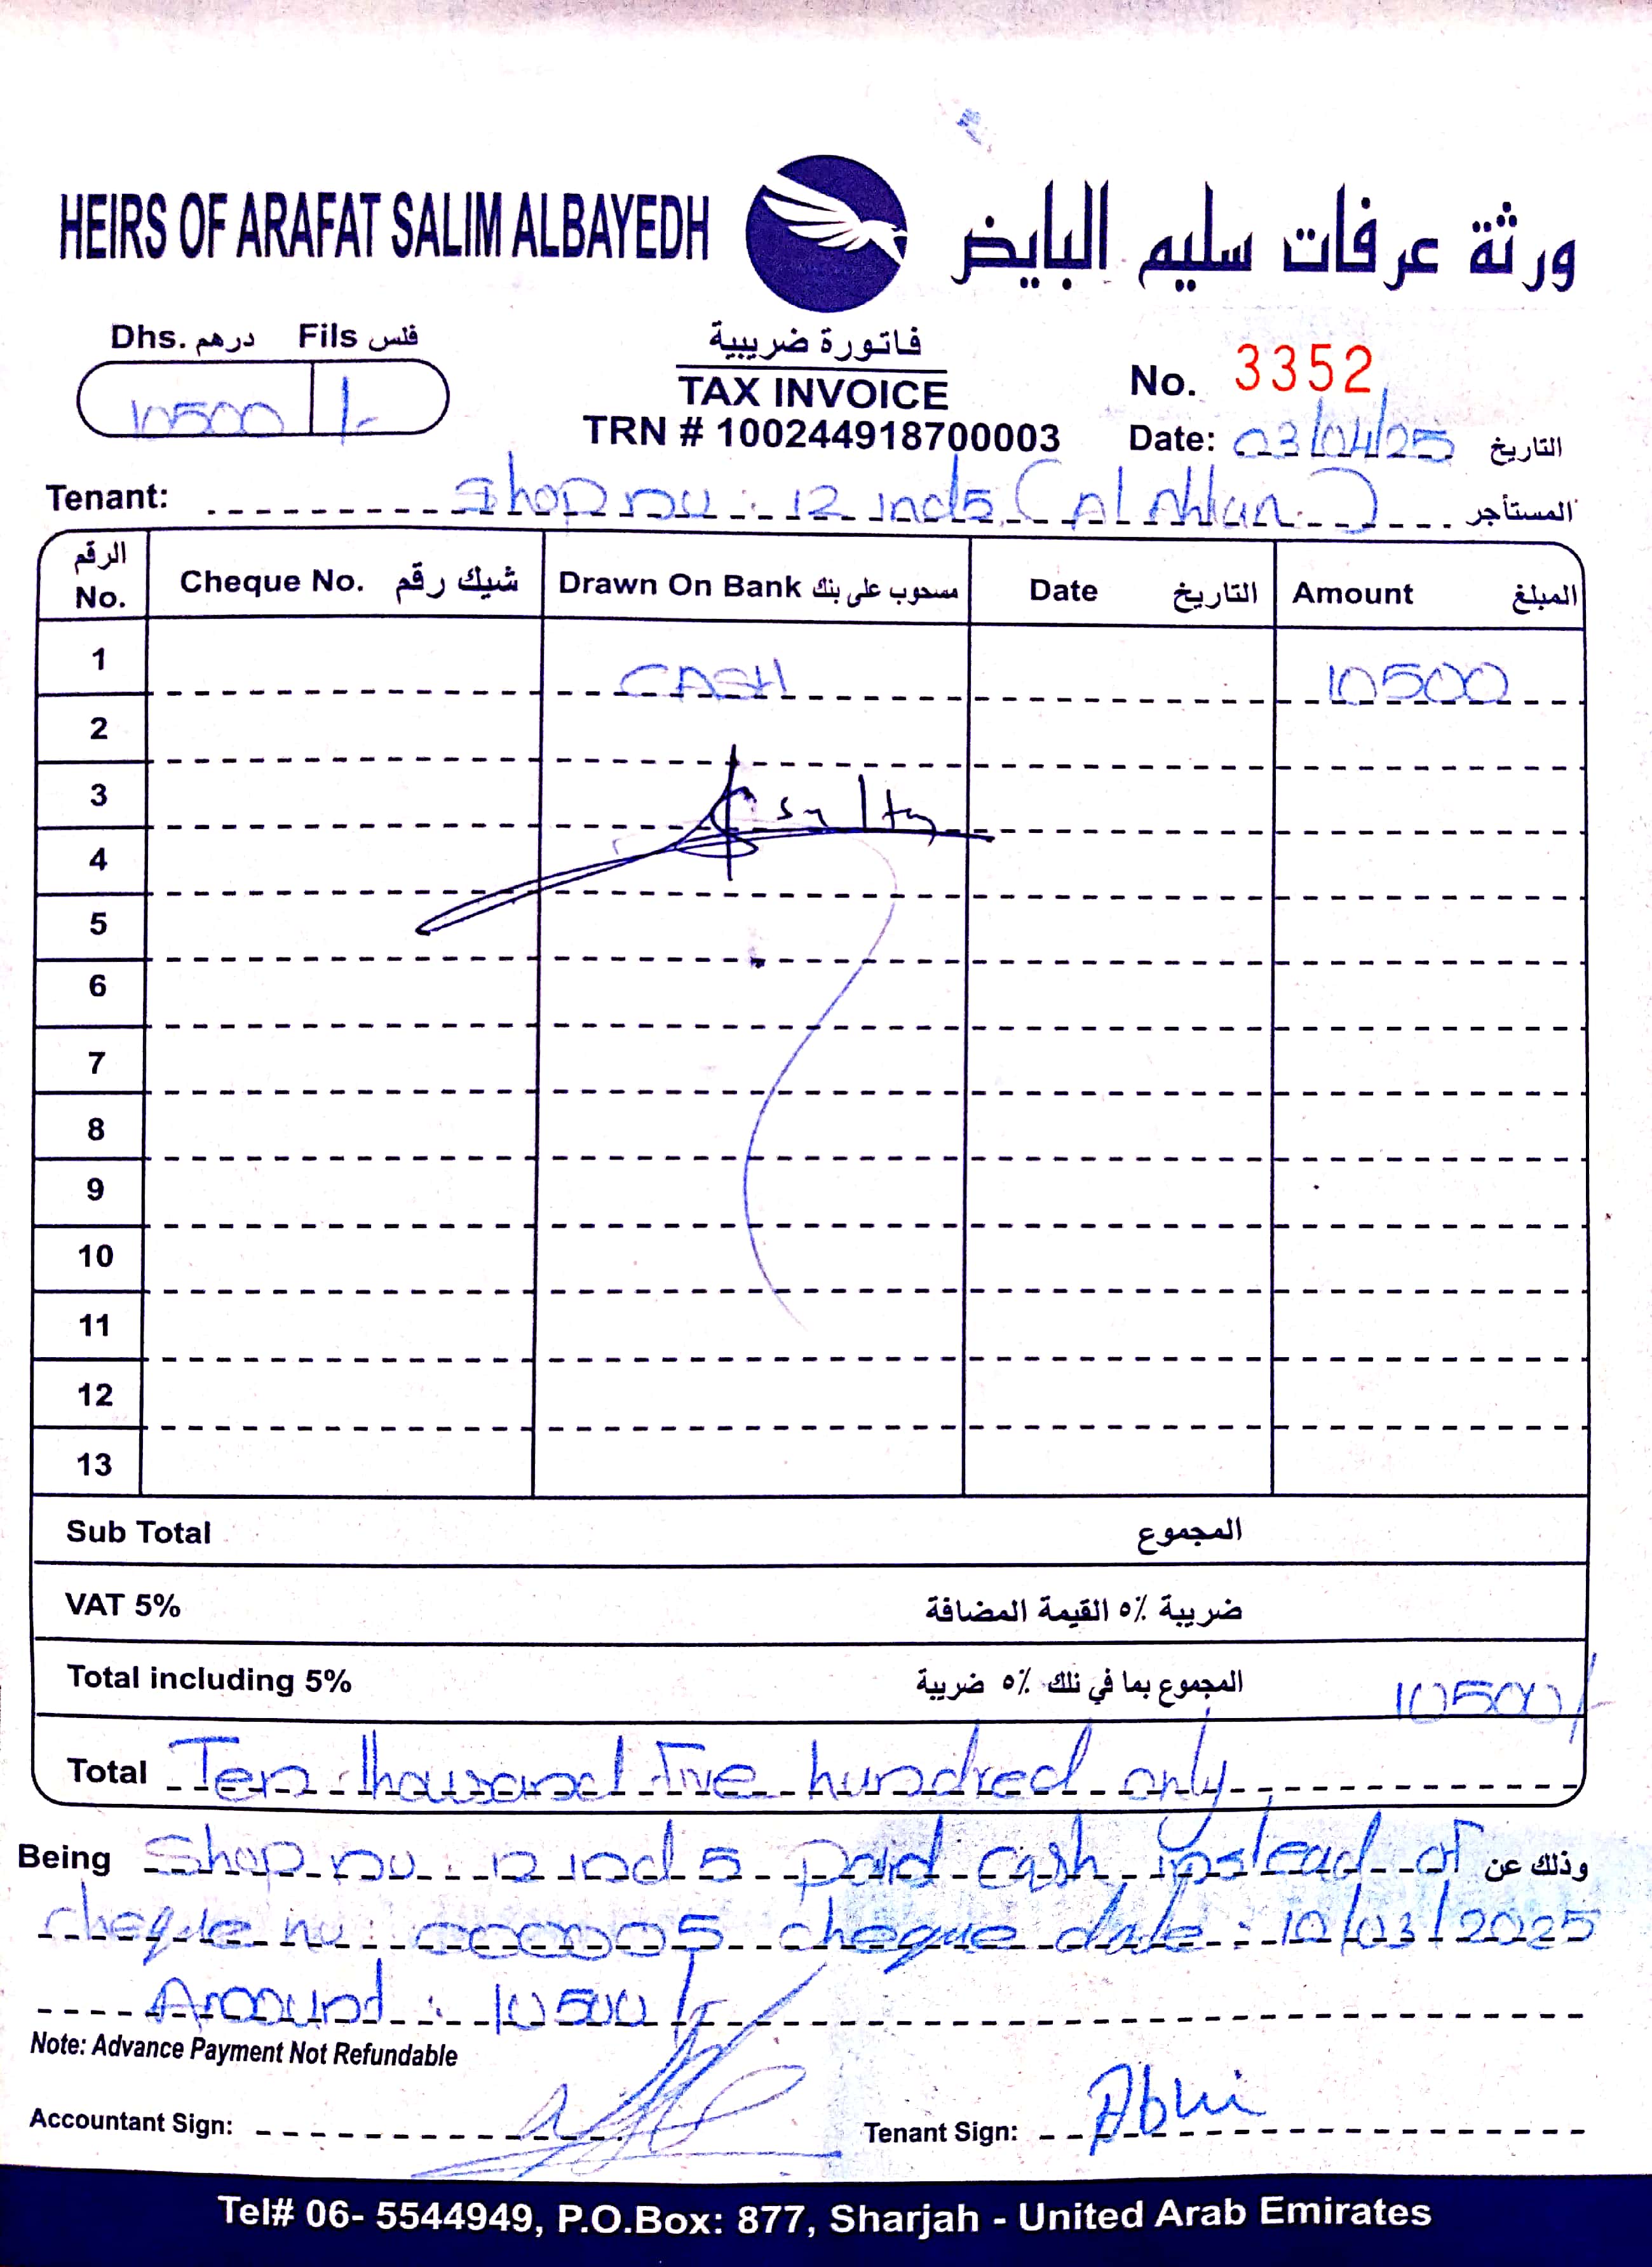 HEIRS OF ARAFAT SALIM ALBAYEDH ورثة عرفات سليم البايض
Dhs. درهم Fils فلس
10500 /-
فاتورة ضريبية
TAX INVOICE
TRN # 100244918700003
No. 3352
Date: 03/04/25 التاريخ
Tenant: Shop no: 12 ind5 (Al Ahlan) المستأجر
الرقم No. Cheque No. شيك رقم Drawn On Bank مسحوب على بنك Date التاريخ Amount المبلغ
1 CASH 10500
2
3
4
5
6
7
8
9
10
11
12
13
Sub Total المجموع
VAT 5% ضريبة ٥٪ القيمة المضافة
Total including 5% المجموع بما في ذلك ٥٪ ضريبة 10500/-
Total Ten thousand Five hundred only
Being Shop no: 12 ind 5 Paid Cash instead of وذلك عن
cheque no: 000005 cheque date: 10/03/2025
Amound: 10500/-
Note: Advance Payment Not Refundable
Accountant Sign:
Tenant Sign: Abhi
Tel# 06- 5544949, P.O.Box: 877, Sharjah - United Arab Emirates